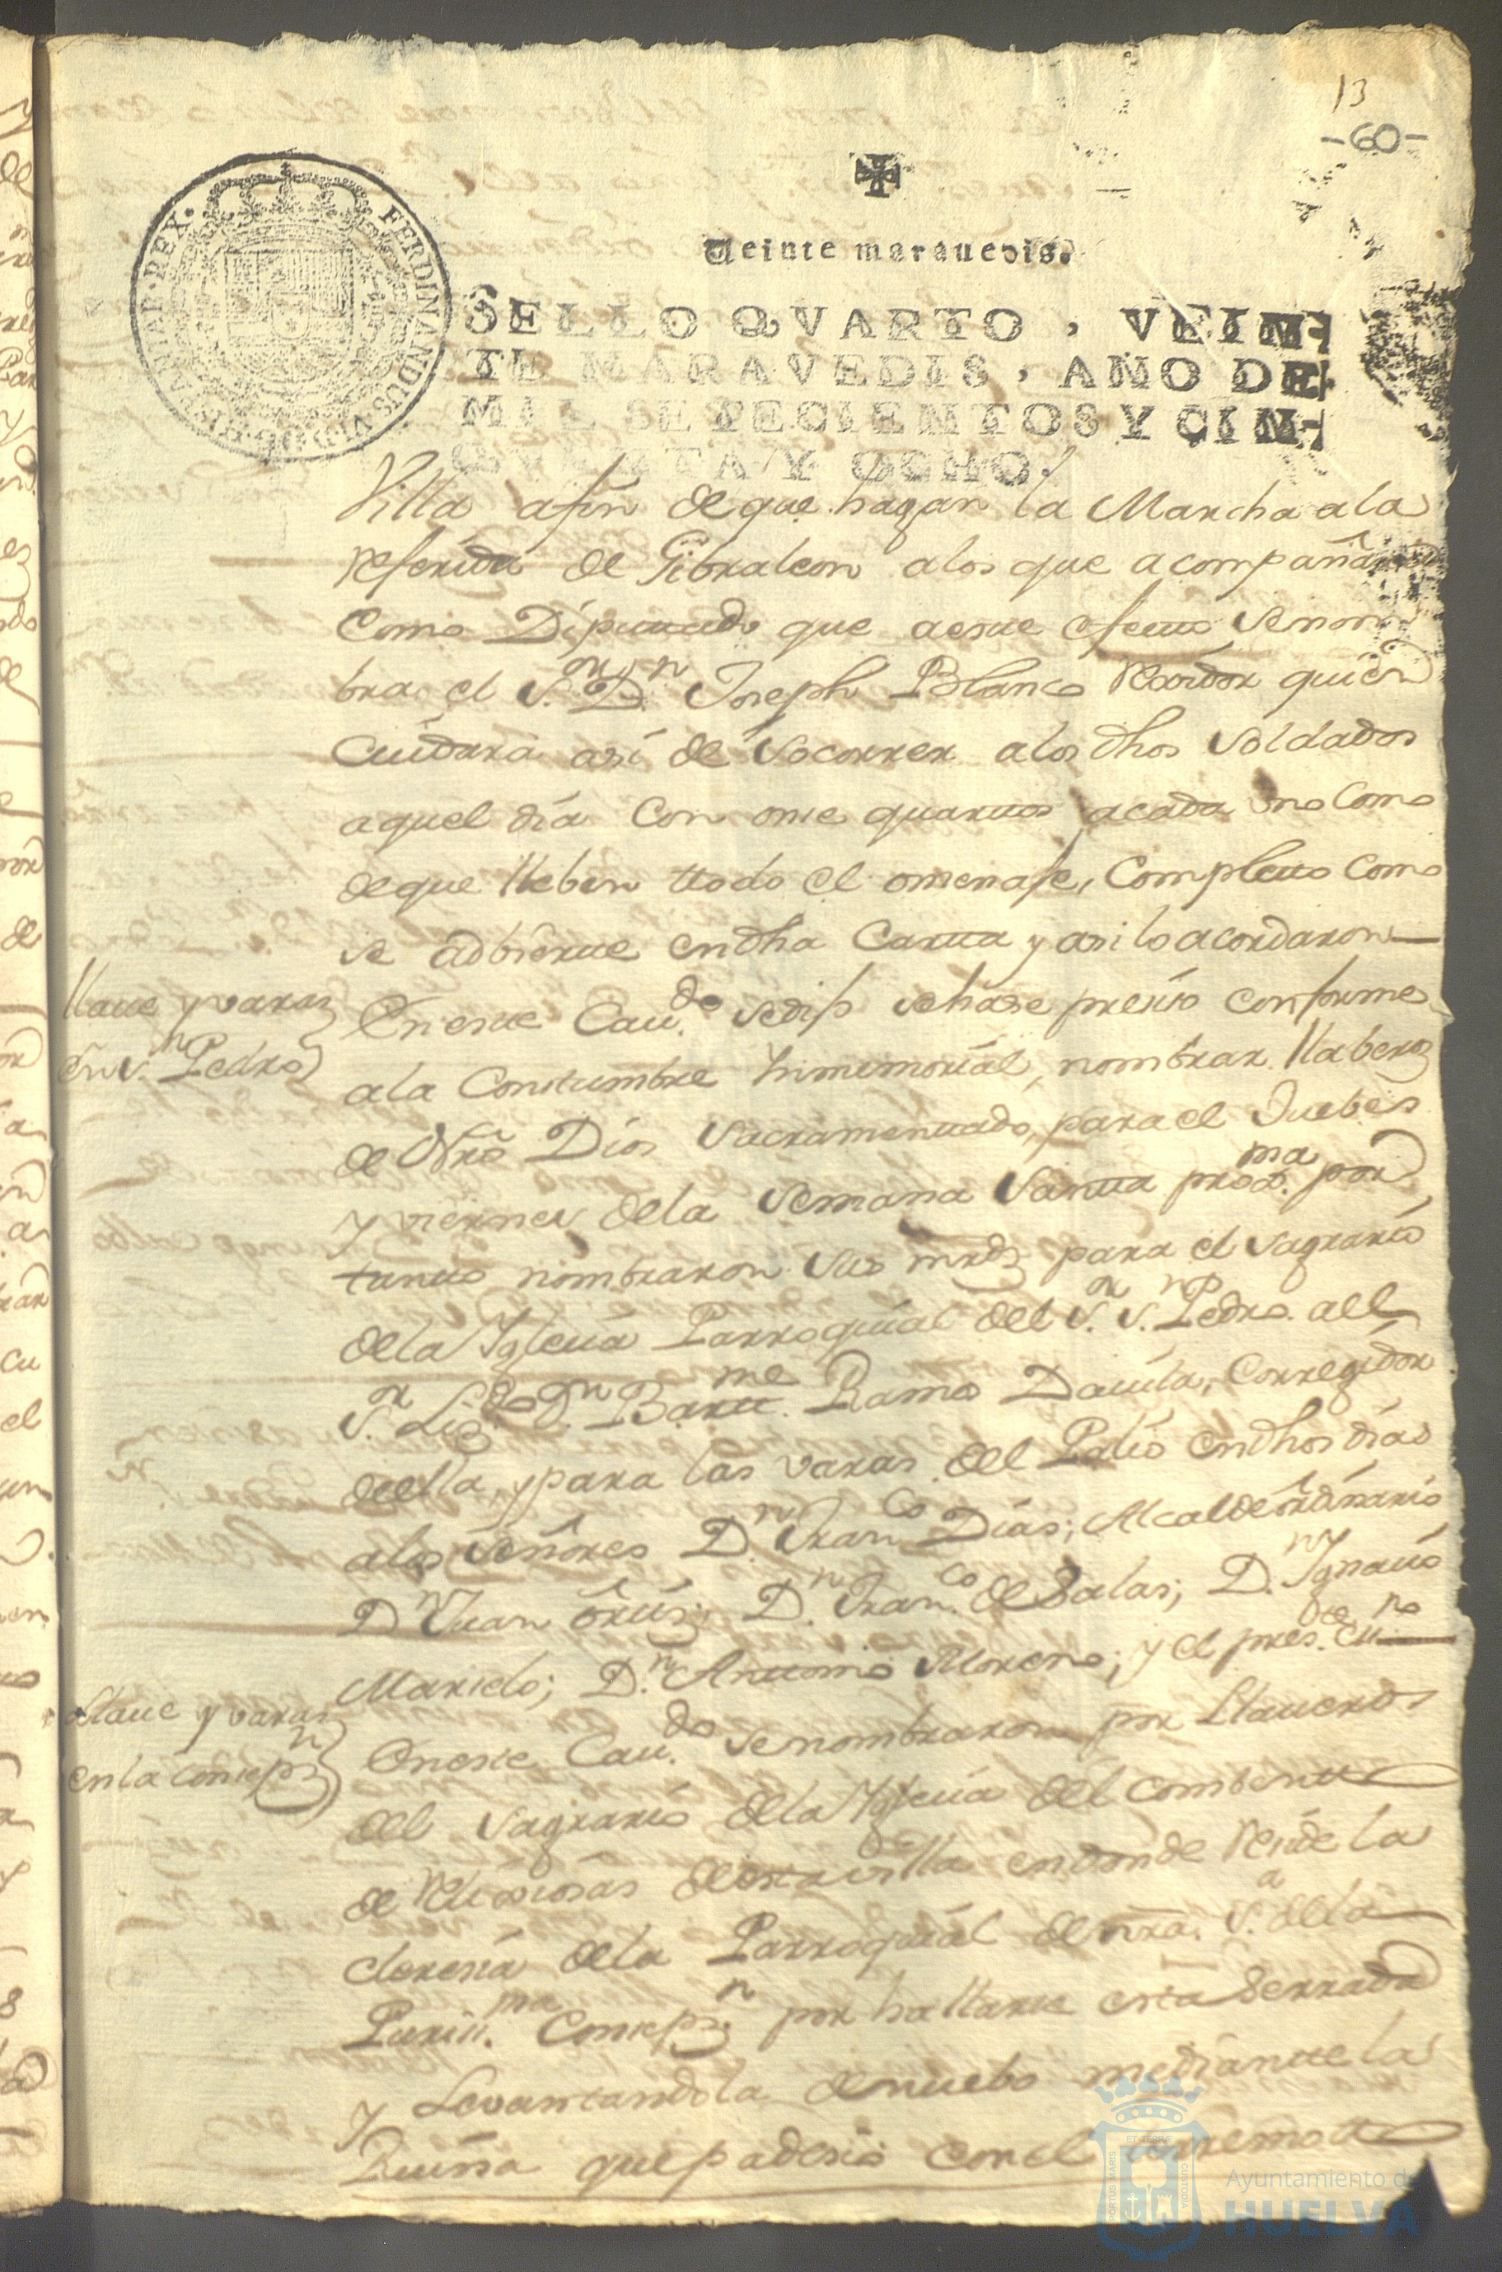 13
-60-
FERDINANDUS·VI·D·G·HISPANIAR·REX·
Veinte marauedis.
SELLO QVARTO, VEIN-
TE MARAVEDIS, AÑO DE
MIL SETECIENTOS Y CIN-
QVENTA Y OCHO.
Villa afin deque hagan la Marcha ala
referida de Gibraleon alos que acompañara
Como Diputtado que aeste efectto se nom
bra el S.or D.n Joseph Blanco Rexidor quien
Cuidará asi de Socorrer alos dhos Soldados
aquel dia Con onse quarttos acada vno Como
deque lleben ttodo el omenaje, Complectto Como
se adbierte endha Cartta y asi lo acordaron
llaue y varas
en S.n Pedro
En este Cau.do se dijo se hase presiso conforme
ala Constumbre Ynmemorial, nombrar llaberos
de Nro Dios Sacramenttado, para el Juebes
y viernes dela Semana Santta prox.ma por
tantto nombraron sus mrds para el Sagrario
dela Iglesia Parroquial del S.or S.n Pedro all
S.or Liz.do D.n Bartt.me Ramos Dauila, Corregidor
della, y para las varas del Palio endhos dias
alos señores D.n Fran.co Dias; Alcalde ôrdinario
D.n Juan ôrtis; D.n Fran.co de Salas; D.n Ignasio
Marielo; D.n Anttonio Moreno; y el pres.te Cu.no
llaue y varas
en la Consepz.n
En este Cau.do se nombraron por Llaueros
del Sagrario dela Iglesia del combentto
de Relixiosas desta villa en donde reside la
cleresia dela Parroquial de nra. S.a dela
Puriss.ma Consepz.n por hallarse esta Serrada
y Levantandola denuebo mediantte la
Ruina que padesio con el terremotto
PORTUS MARIS ET TERRE CUSTODIA
Ayuntamiento de
HUELVA